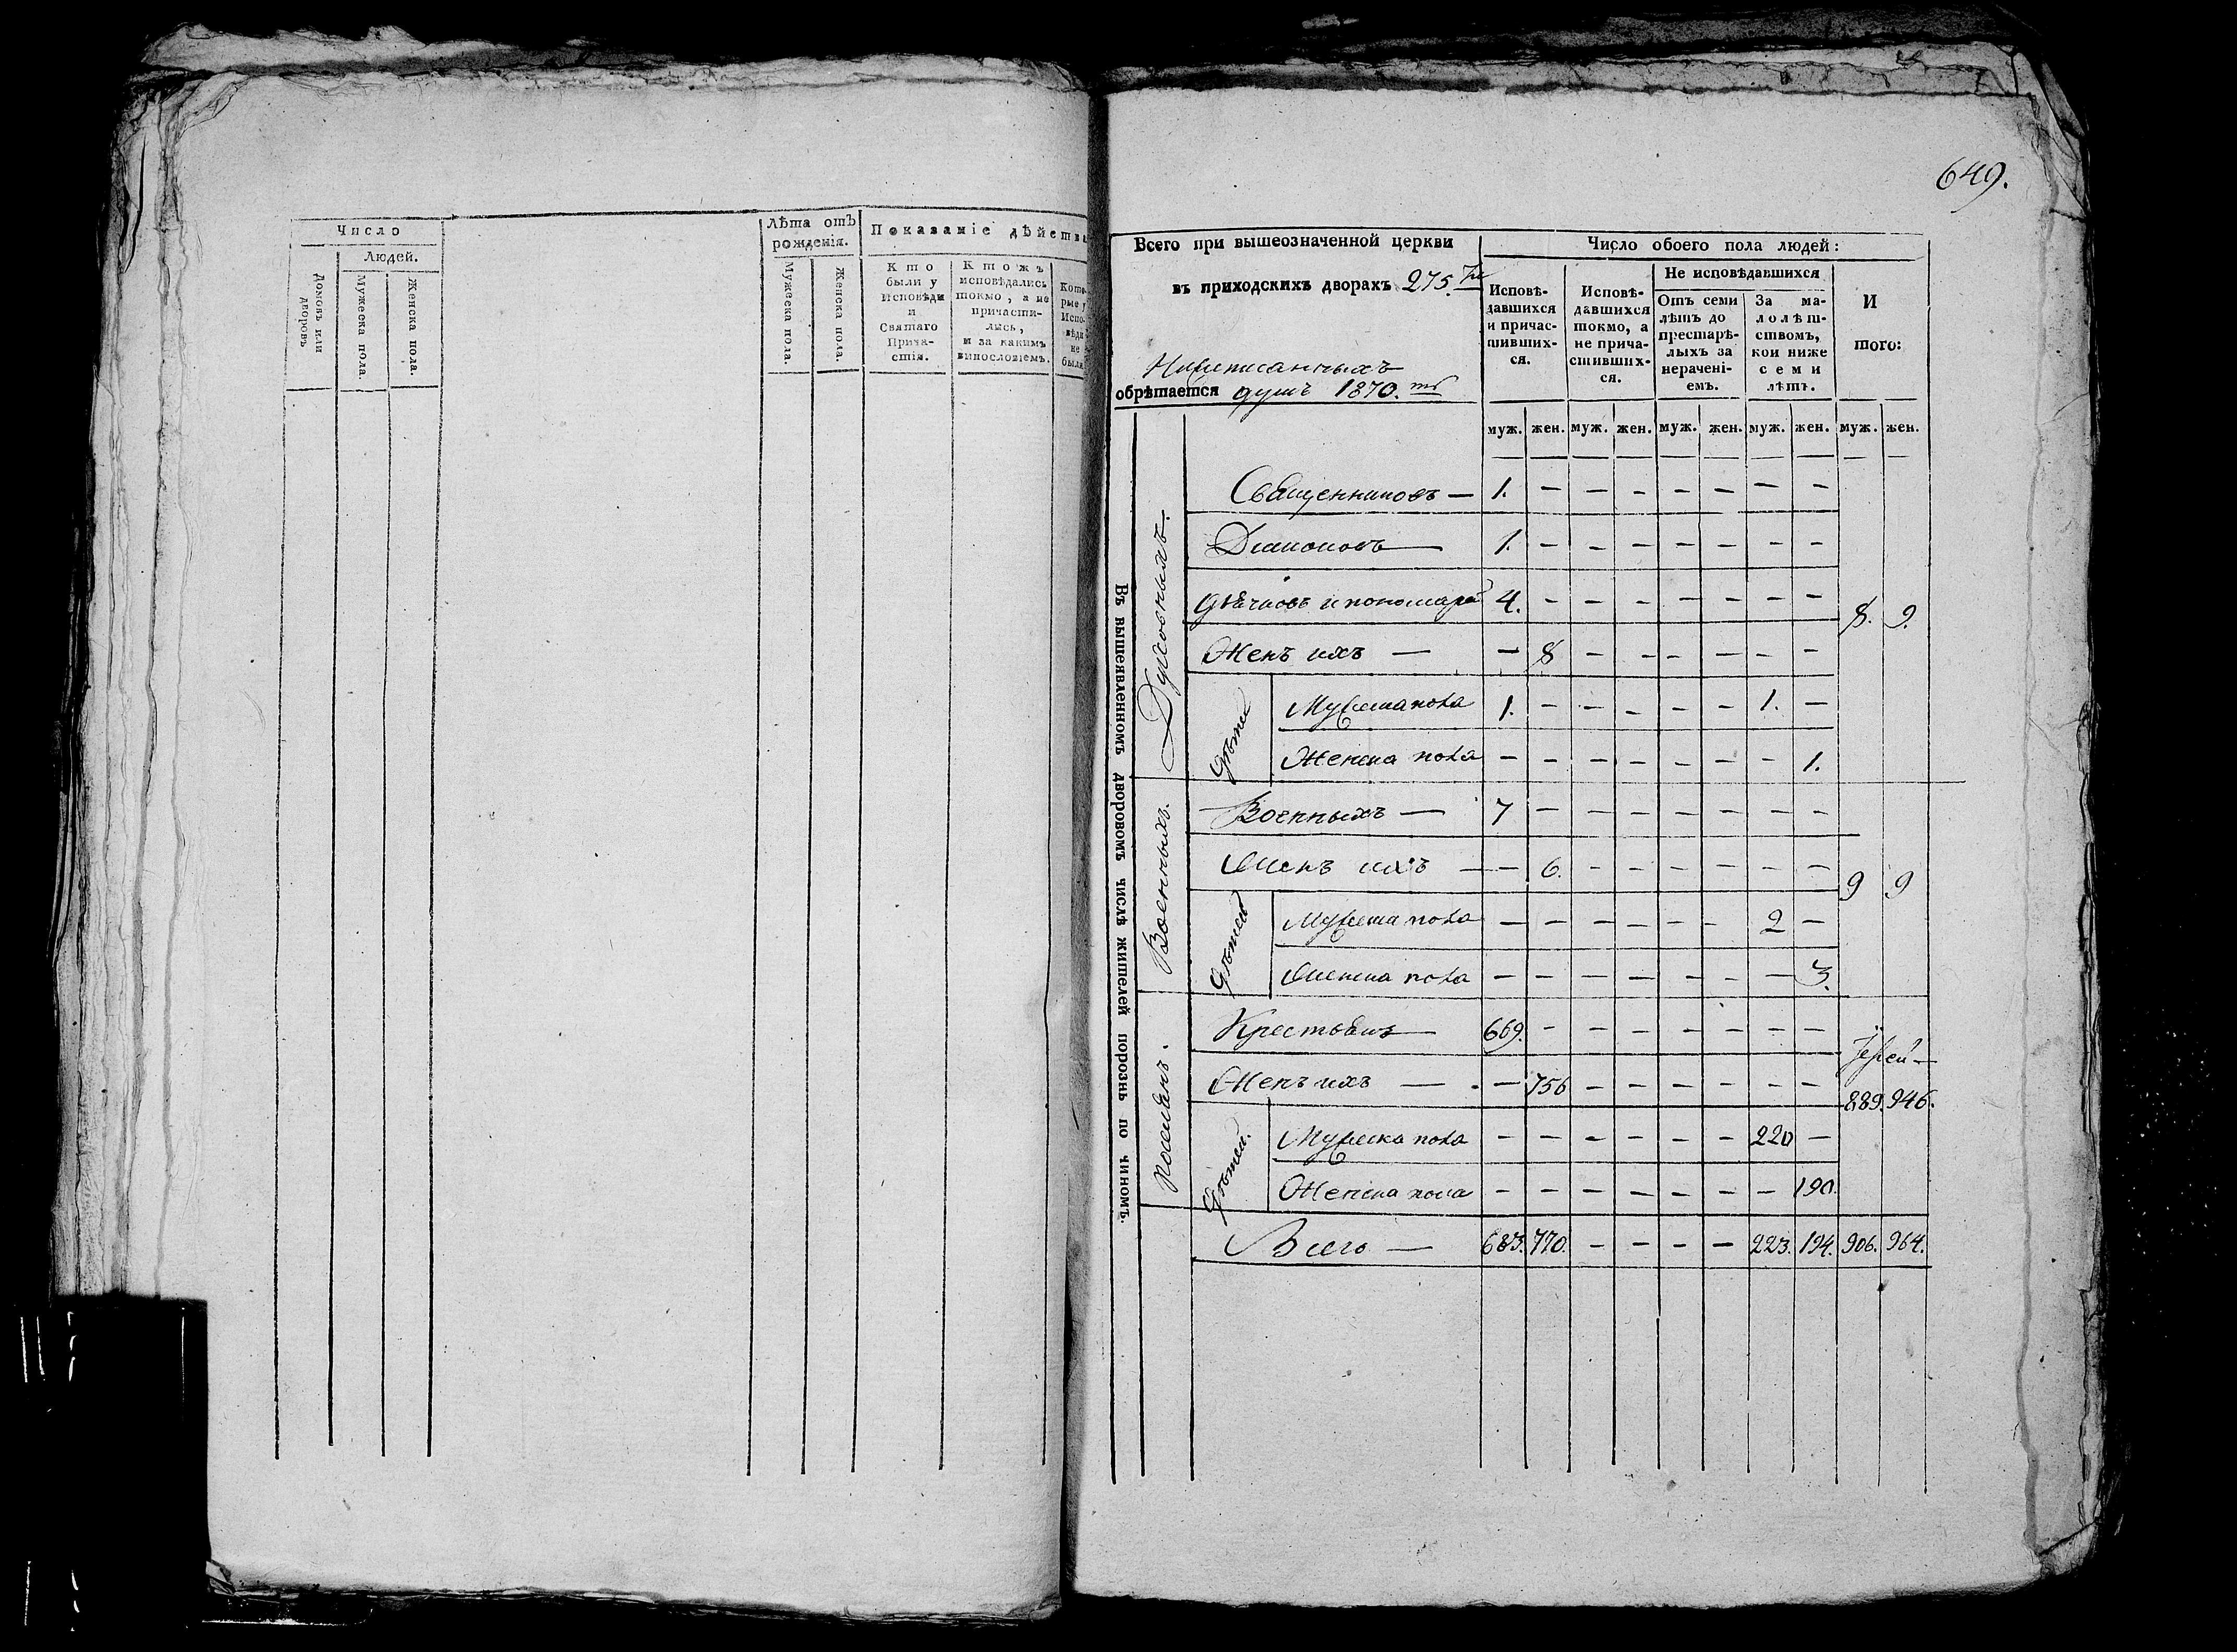 Число
Людей.
Домовъ или дворовъ
Мужеска пола.
Женска пола.
Лѣта отъ рожденія.
Мужеска пола.
Женска пола.
Показаніе дѣйства
Кто
были у
Исповѣди
и
Святаго
Прича-
стія.
Кто жъ
исповѣдались
токмо, а не
причасти-
лись,
и за какимъ
винословіемъ.
Кото-
рые у
Испо-
вѣди
не
были
649.
Всего при вышеозначенной церкви
въ приходскихъ дворахъ 275.
обрѣтается душъ 1870.
Число обоего пола людей:
Исповѣ-
давшихся
и причас-
тивших-
ся.
Исповѣ-
давшихся
токмо, а
не прича-
стивших-
ся.
Не исповѣдавшихся
Отъ семи
лѣтъ до
престарѣ-
лыхъ за
нерачені-
емъ.
За ма-
лолѣт-
ствомъ,
кои ниже
семи
лѣтъ.
И
того:
муж. жен. муж. жен. муж. жен. муж. жен. муж. жен.
Въ вышеявленномъ дворовомъ числѣ жителей порознь по чиномъ.
Духовныхъ.
Священниковъ — 1. — — — — — — —
Діаконовъ — 1. — — — — — — —
Дьячковъ и пономарей 4. — — — — — — —
8. 9.
Женъ ихъ — — 8 — — — — — —
Дѣтей
Мужеска пола 1. — — — — — 1. —
Женска пола — — — — — — — 1.
Военныхъ.
Военныхъ — 7 — — — — — — —
Женъ ихъ — — 6. — — — — — —
9 9
Дѣтей
Мужеска пола — — — — — — 2 —
Женска пола — — — — — — — 3.
Поселянъ.
Крестьянъ — 669. — — — — — — —
Женъ ихъ — — 756 — — — — — —
889. 946.
Дѣтей.
Мужеска пола — — — — — — 220 —
Женска пола — — — — — — — 190.
Всего — 683. 770. — — — — 223. 194. 906. 964.